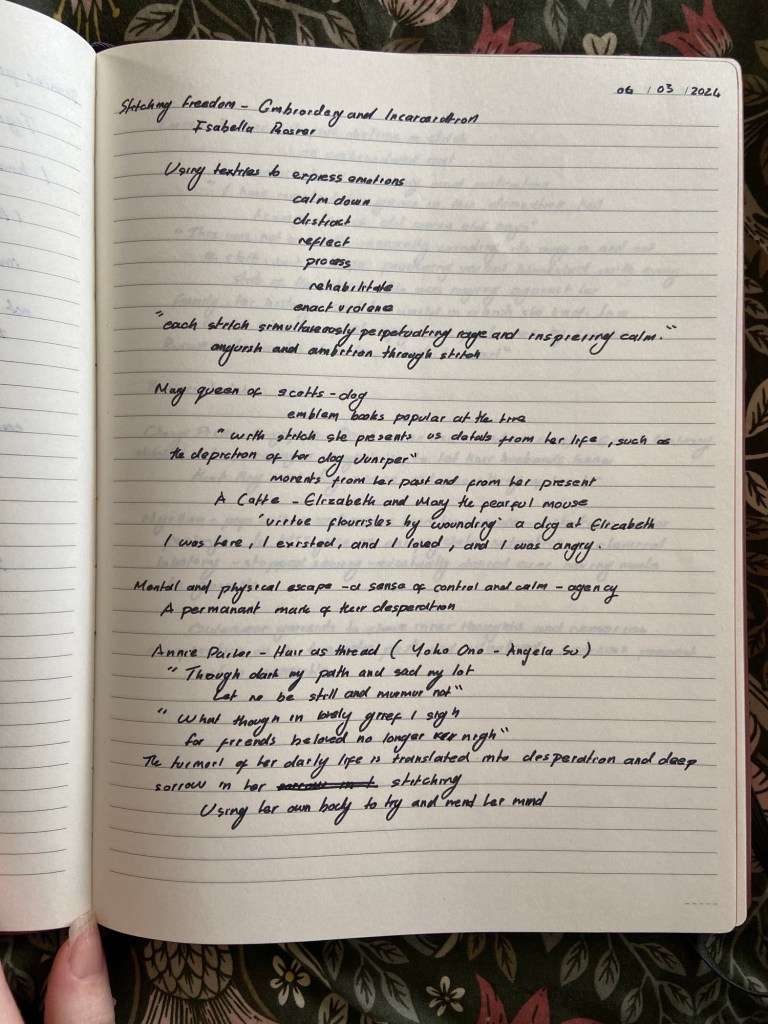 06 / 03 / 2024
Stitching Freedom - Embroidery and Incarceration
Isabella Rosner
Using textiles to express emotions
calm down
distract
reflect
process
rehabilitate
enact violence
"each stitch simultaneously perpetuating rage and inspiering calm."
anguish and ambition through stitch
May queen of scotts - dog
emblem books popular at the time
"with stitch she presents us details from her life, such as
the depiction of her dog Juniper"
moments from her past and from her present
A Catte - Elizabeth and May the fearful mouse
'virtue flourishes by wounding' a dig at Elizabeth
I was here, I existed, and I loved, and I was angry.
Mental and physical escape - a sense of control and calm - agency
A permanant mark of their desperation
Annie Parker - Hair as thread ( Yoko Ono - Angela Su )
"Though dark my path and sad my lot
Let me be still and murmur not"
"What though in lonely grief I sigh
for friends beloved no longer nigh"
The turmoil of her daily life is translated into desperation and deep
sorrow in her stitching
Using her own body to try and mend her mind